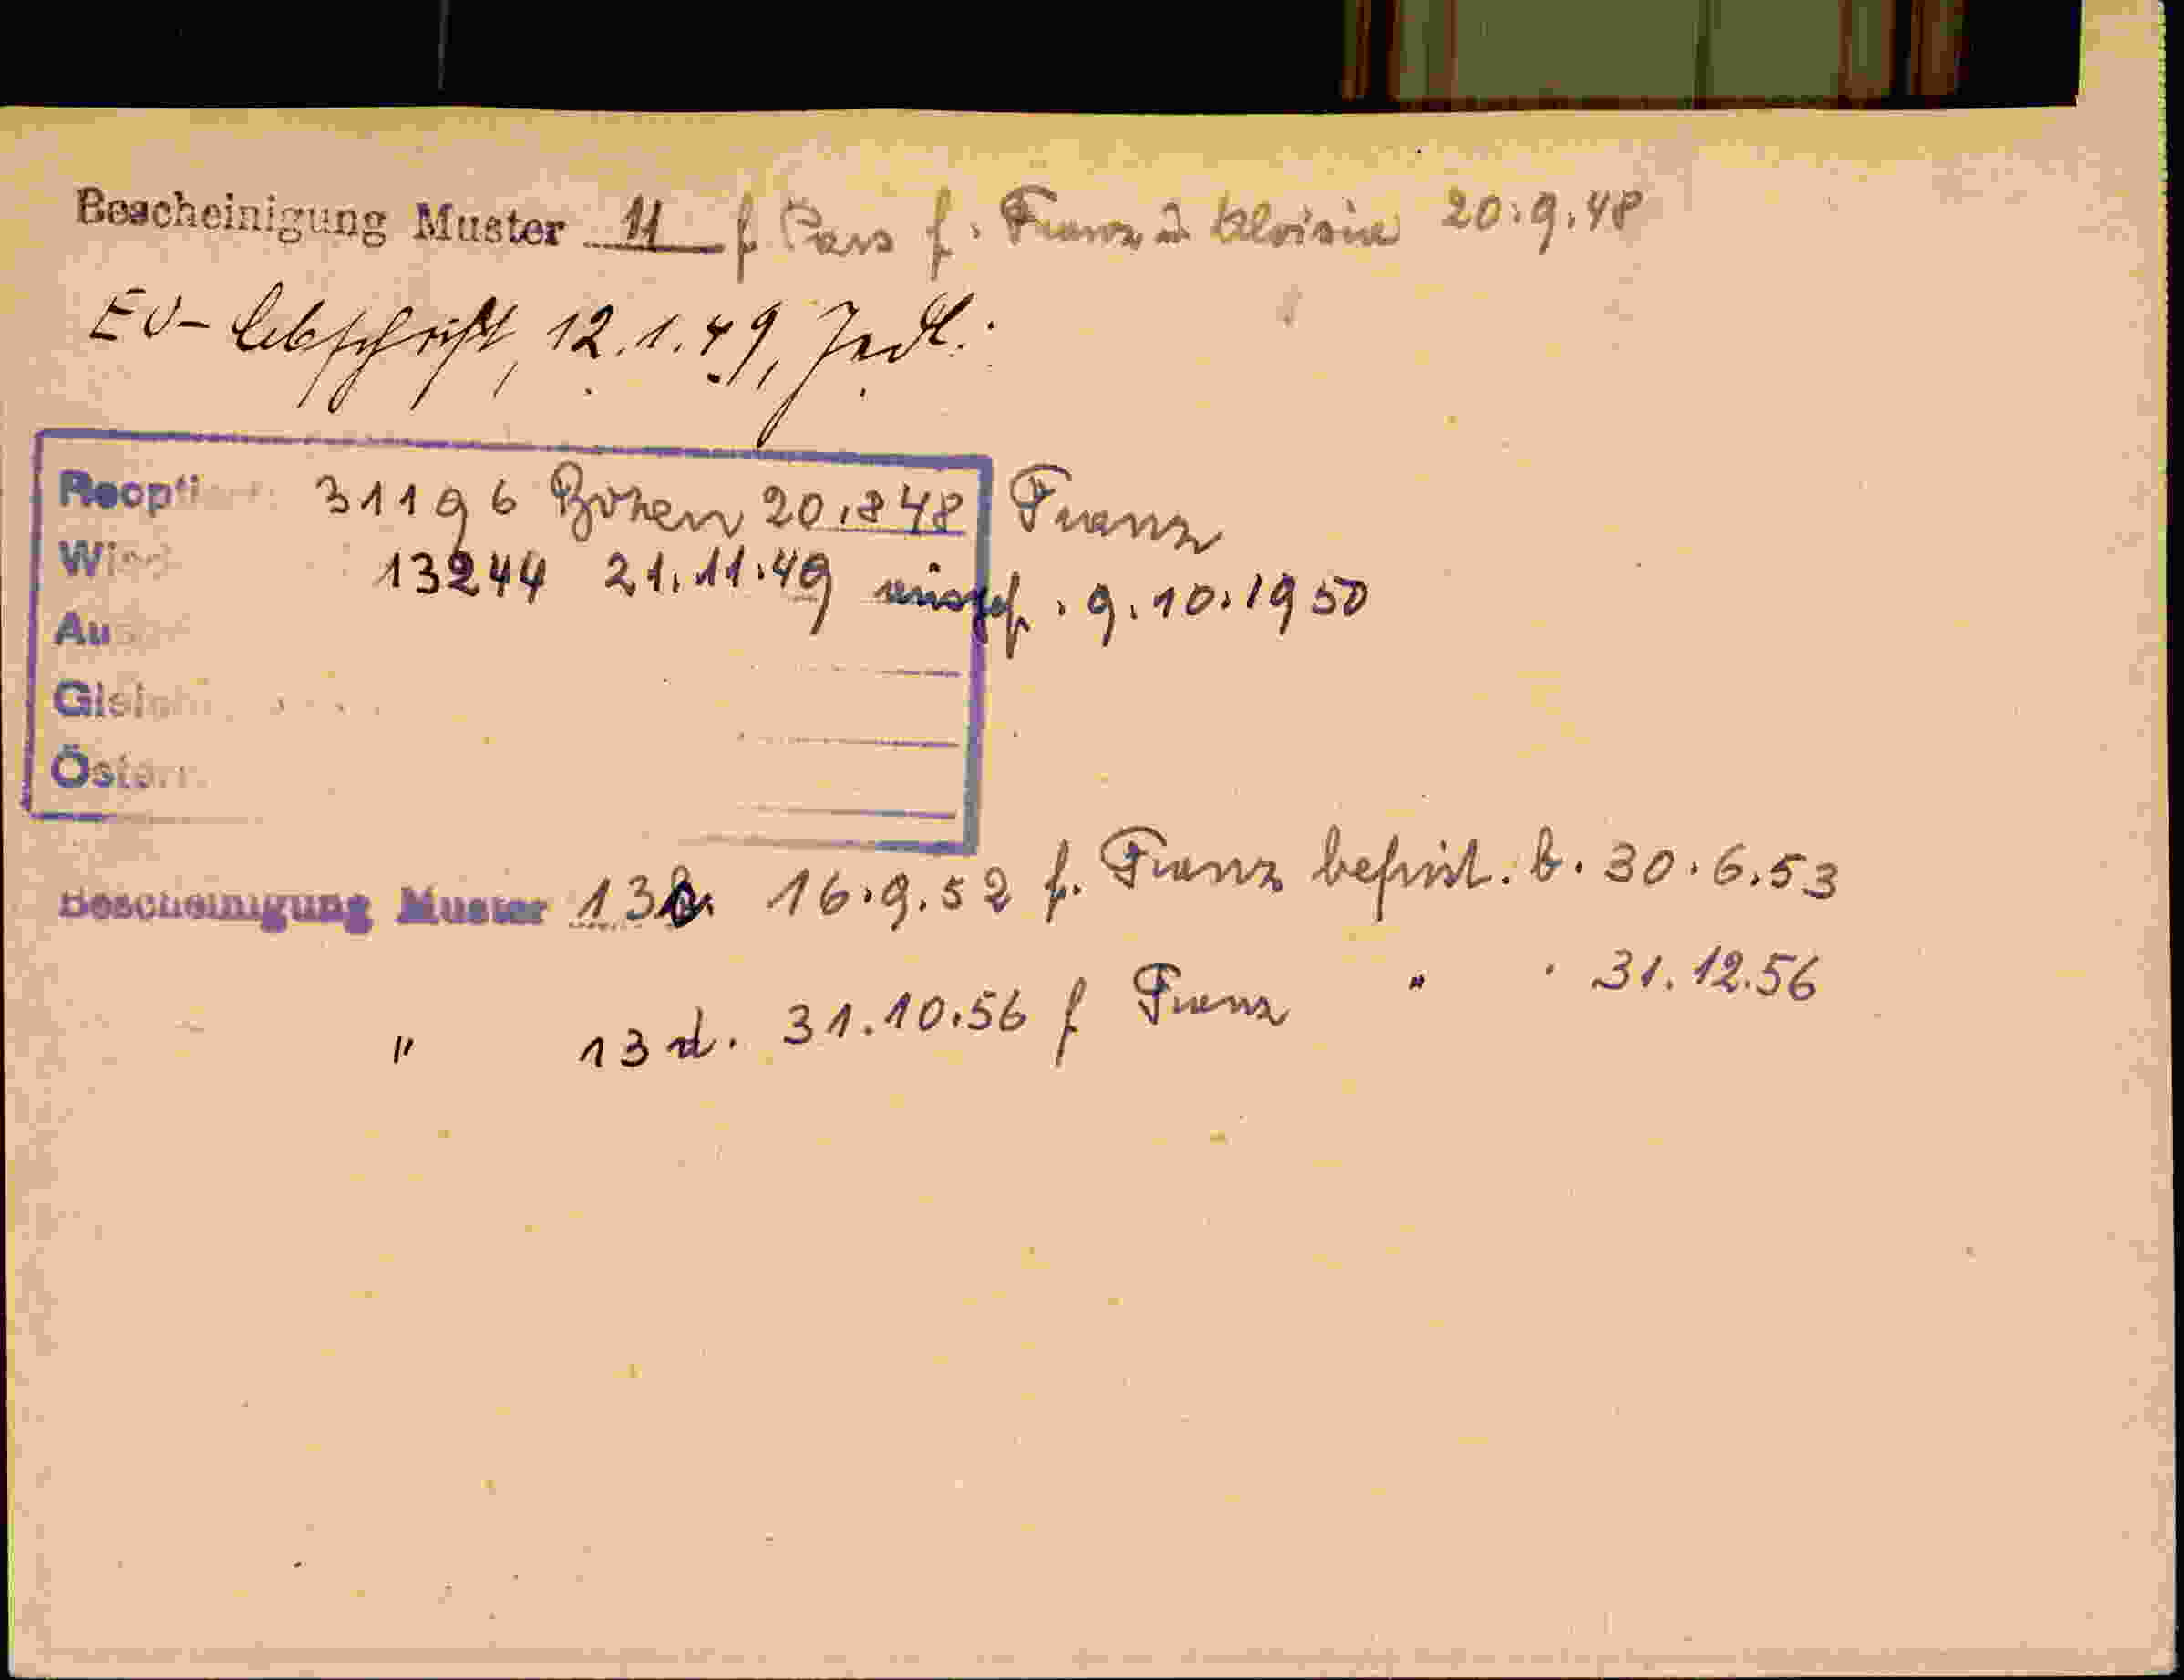 Bescheinigung Muster 11 f Pass f. Franz u Aloisia 20.9.48
EU-Abschrift, 12.1.49,
Reopti 31196 Bozen 20.8 48 Franz
Wied 13244 21.11.49 ausgef. 9.10.1950
Au
Gleich
Österr.
Bescheinigung Muster 13b. 16.9.52 f. Franz befrist. b. 30.6.53
" 13d. 31.10.56 f Franz " . 31.12.56